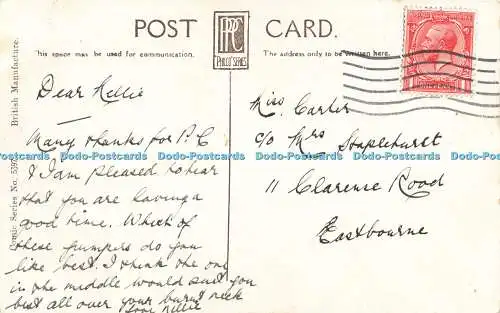 POST CARD.
PPC
PHILCO SERIES
This space may be used for communication.
The address only to be written here.
British Manufacture.
Comic Series No.
Dear Nellie
Many thanks for P.C
& I am pleased to hear
that you are having a
good time. Which of
these jumpers do you
like best. I think the one
in the middle would suit you
best all over your burnt neck
love Nellie
Miss Carter
c/o Mrs Staplehurst
11 Clarence Road
Eastbourne
Dodo-Postcards Dodo-Postcards Dodo-Postcards Dodo-Postcards Dodo-Postcards Dodo-Postcards